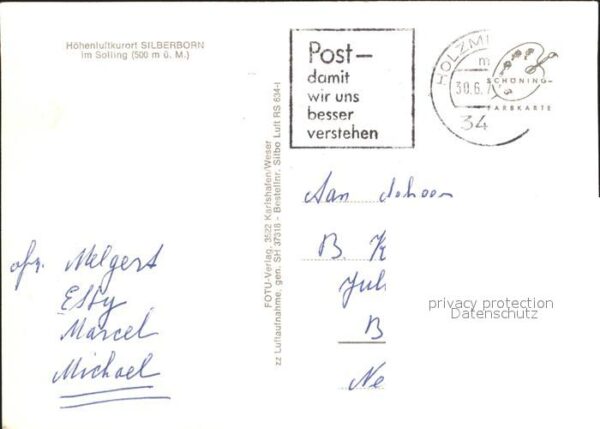 Höhenluftkurort SILBERBORN
im Solling (500 m ü. M.)
Post-
damit
wir uns
besser
verstehen
HOLZMI
m
30.6.7
34
SCHÖNING-
FARBKARTE
FOTU-Verlag, 3522 Karlshafen/Weser
zz Luftaufnahme, gen. SH 37618 - Bestellnr. Silbo Luft RS 634-I
Aan
B. K
Jul
B
Ne
privacy protection
Datenschutz
afz. Melgert
Esty
Marcel
Michael